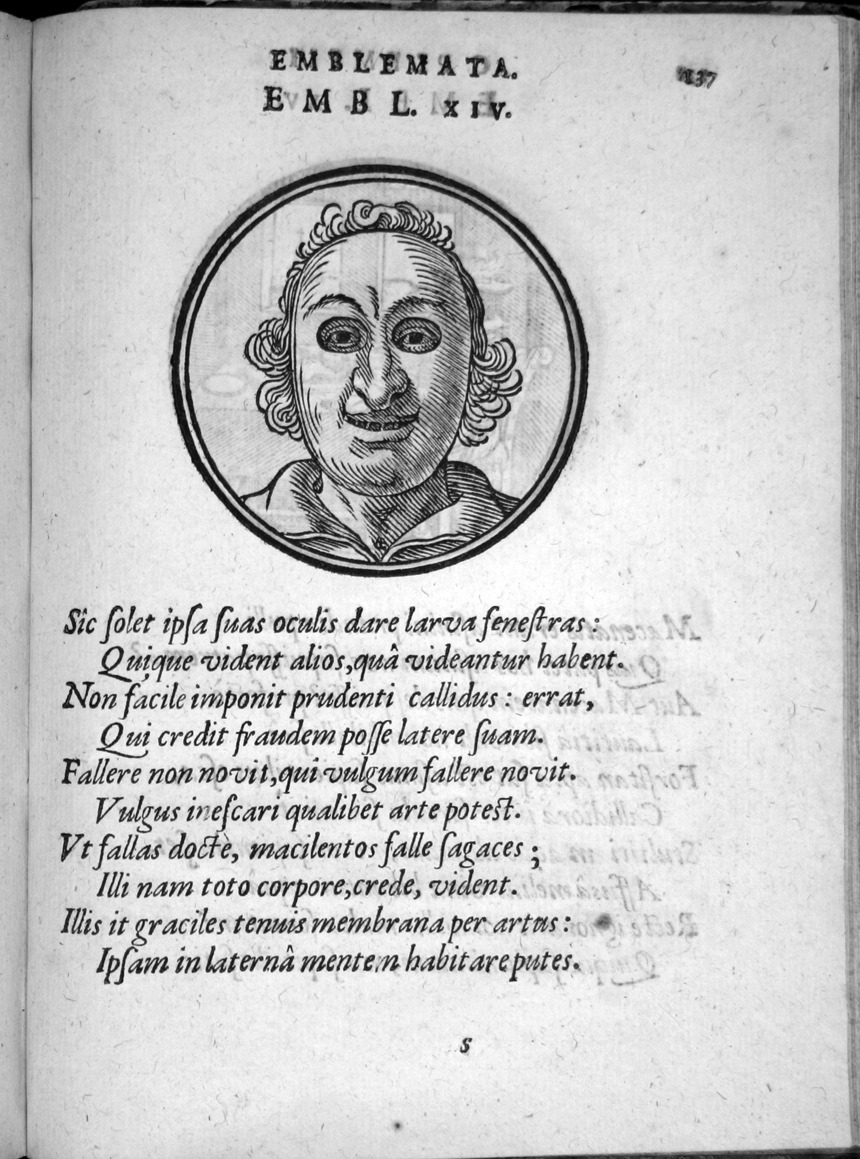 EMBLEMATA.
137
EMBL. XIV.
Sîc ſolet ipſa ſuas oculis dare larva feneſtras:
Quique vident alios, quâ videantur habent.
Non facile imponit prudenti callidus: errat,
Qui credit fraudem poſſe latere ſuam.
Fallere non novit, qui vulgum fallere novit.
Vulgus ineſcari qualibet arte poteſt.
Vt fallas doctè, macilentos falle ſagaces;
Illi nam toto corpore, crede, vident.
Illis it graciles tenuis membrana per artus:
Ipſam in laternâ mentem habitare putes.
S